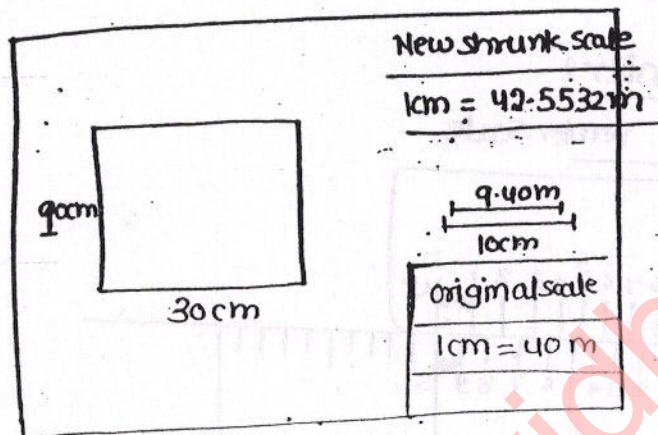 New shrunk scale
1cm = 42.5532m
90cm
9.40m
10cm
30cm
original scale
1cm = 40 m